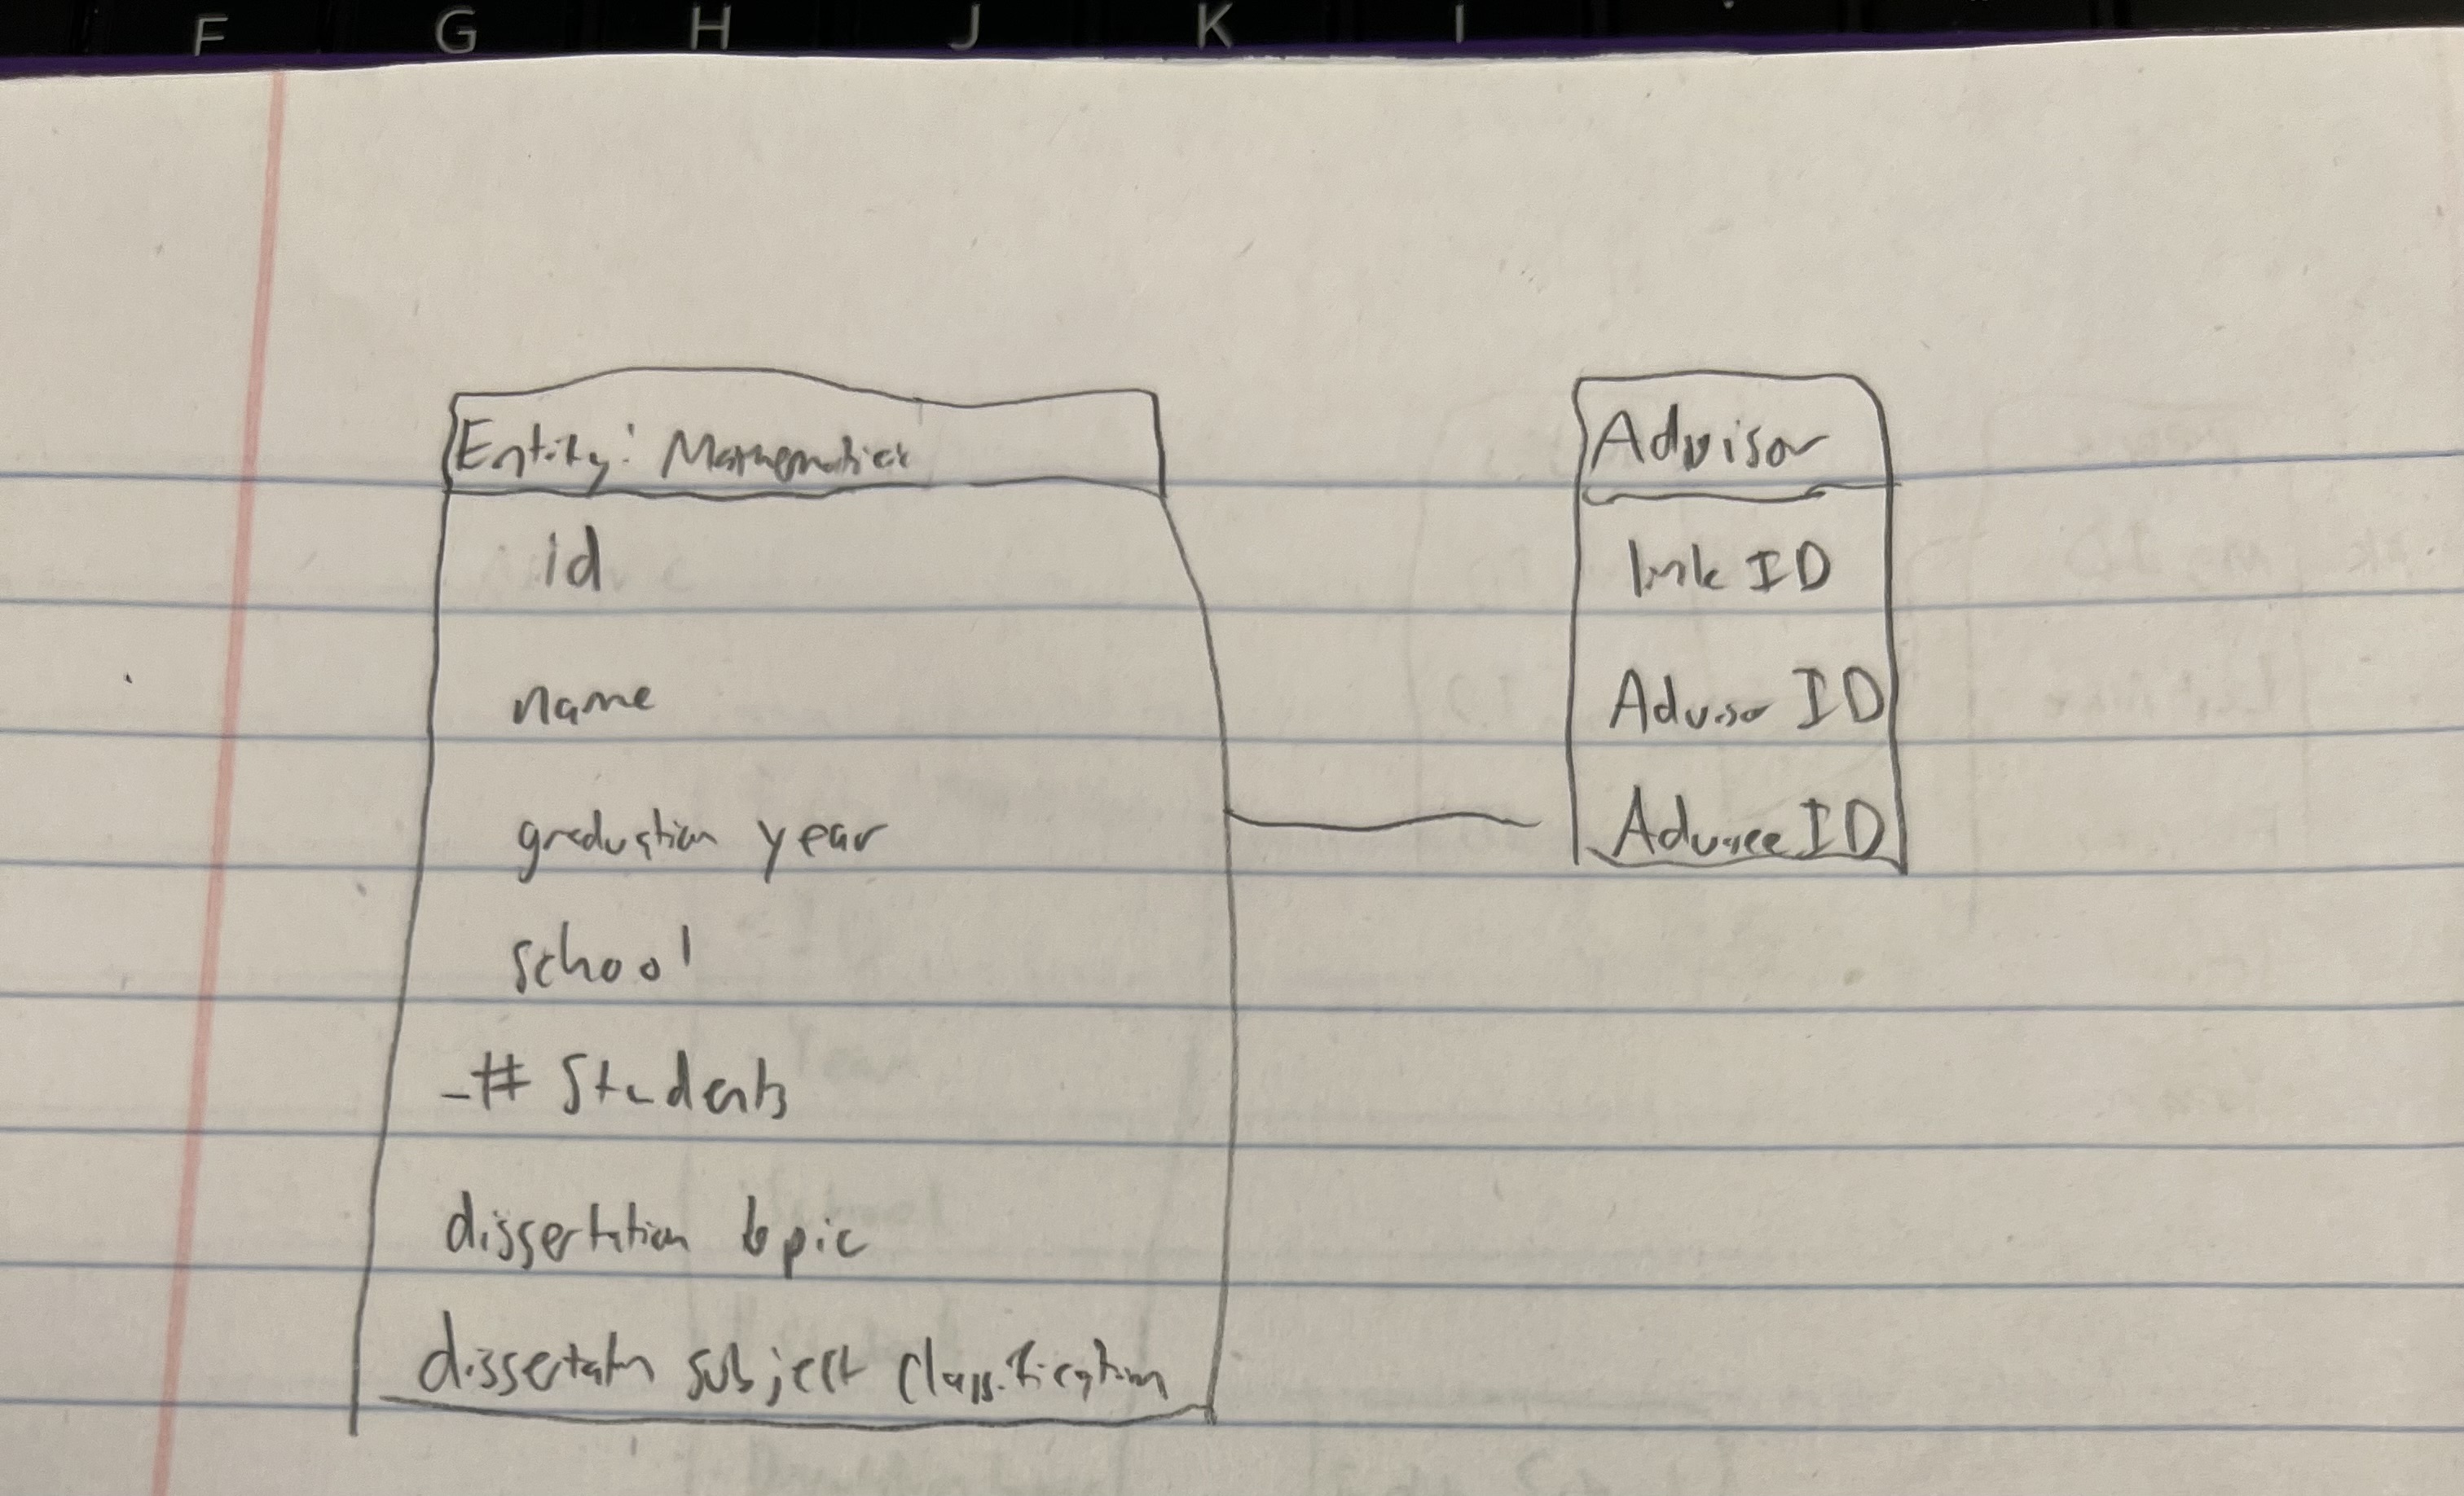 F G H J K
Entity: Mathematician
id
name
graduation year
school
-# Students
dissertation topic
dissertatn subject classification
Advisor
link ID
Advisor ID
Advisee ID